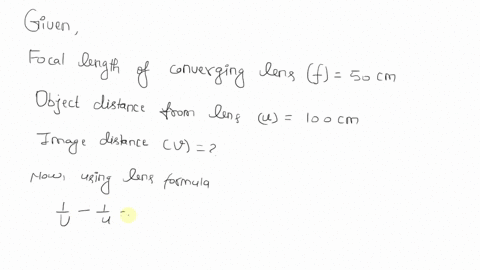 Given,
Focal length of converging lens (f) = 50 cm
Object distance from lens (u) = 100 cm
Image distance (v) = ?
Now, using lens formula
1/v - 1/u -